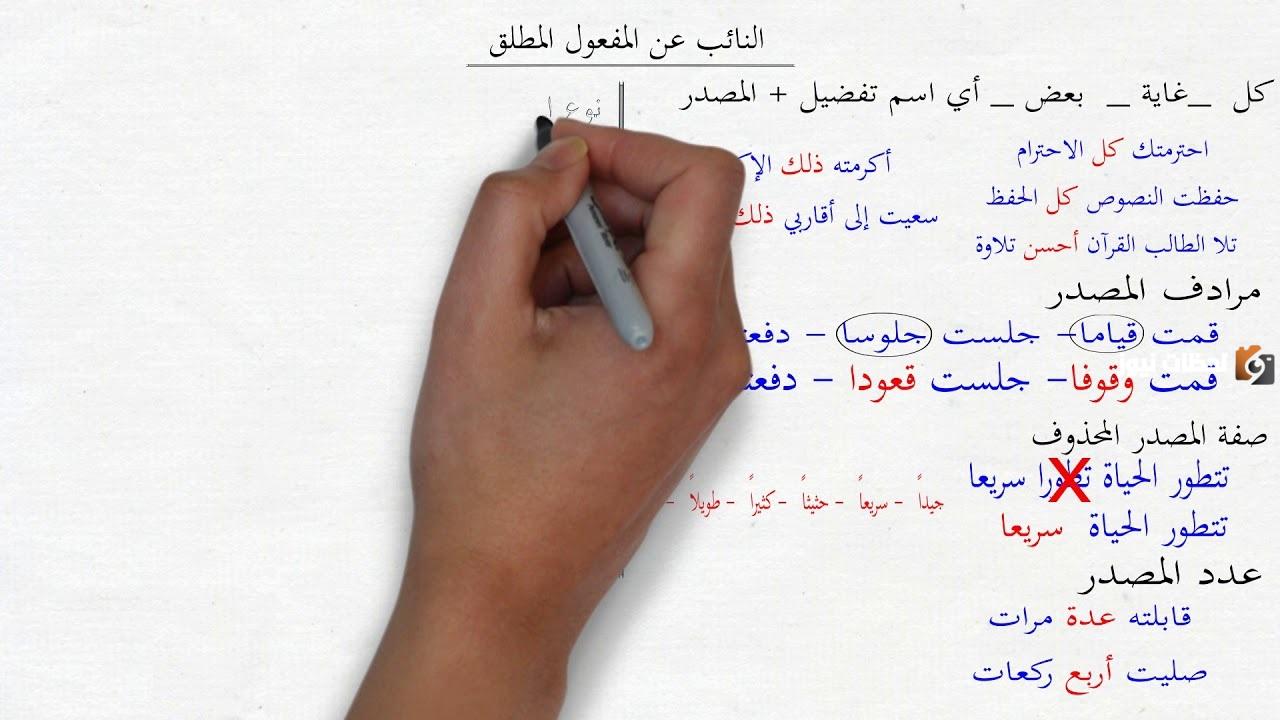 النائب عن المفعول المطلق
كل _غاية _ بعض _ أي اسم تفضيل + المصدر
احترمتك كل الاحترام
حفظت النصوص كل الحفظ
تلا الطالب القرآن أحسن تلاوة
أكرمته ذلك
سعيت إلى أقاربي ذلك
مرادف المصدر
قمت قياما– جلست جلوسا –
قمت وقوفا– جلست قعودا –
لحظات نيوز
صفة المصدر المحذوف
تتطور الحياة تطورا سريعا
تتطور الحياة سريعا
جيداً - سريعاً - حثيثاً - كثيراً - طويلاً -
عدد المصدر
قابلته عدة مرات
صليت أربع ركعات